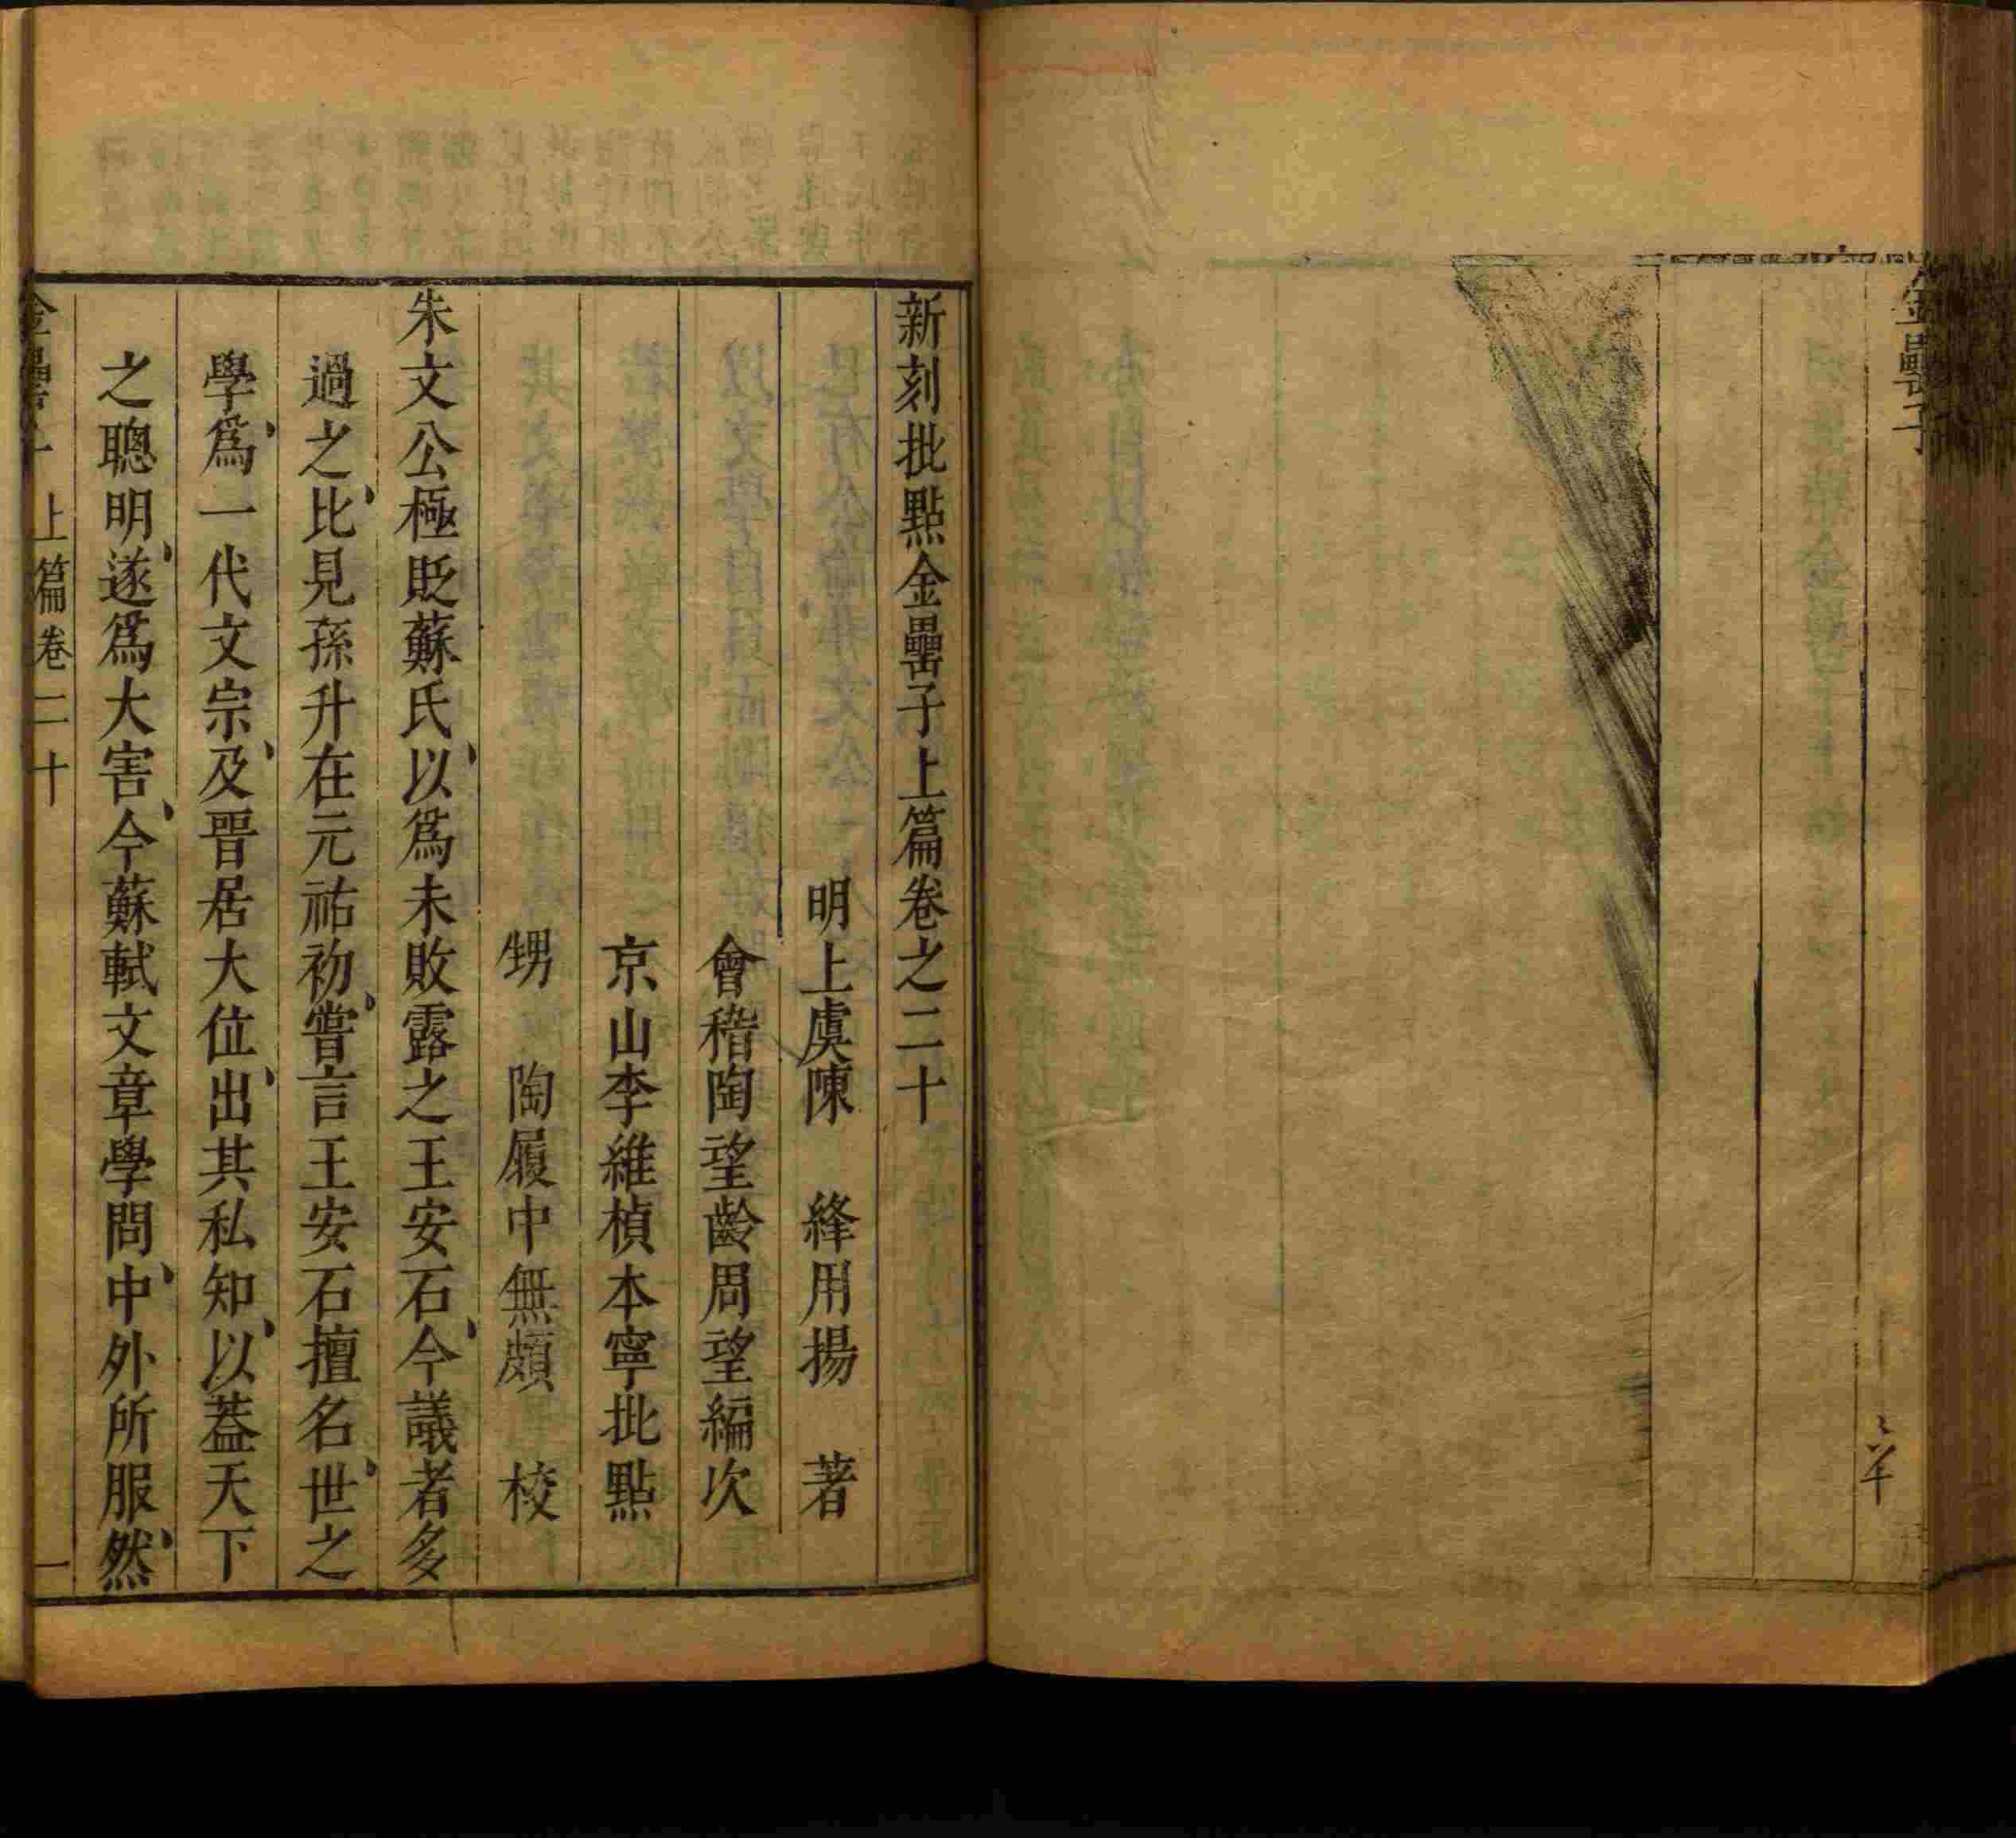 金罍子
新刻批點金罍子上篇卷之二十
明上虞陳　絳用揚　著
會稽陶望齡周望編次
京山李維楨本寧批點
甥　陶履中無頗　校
朱文公極貶蘇氏以爲未敗露之王安石今議者多
過之比見孫升在元祐初嘗言王安石擅名世之
學爲一代文宗及晉居大位出其私知以葢天下
之聰明遂爲大害今蘇軾文章學問中外所服然
上篇卷二十
一